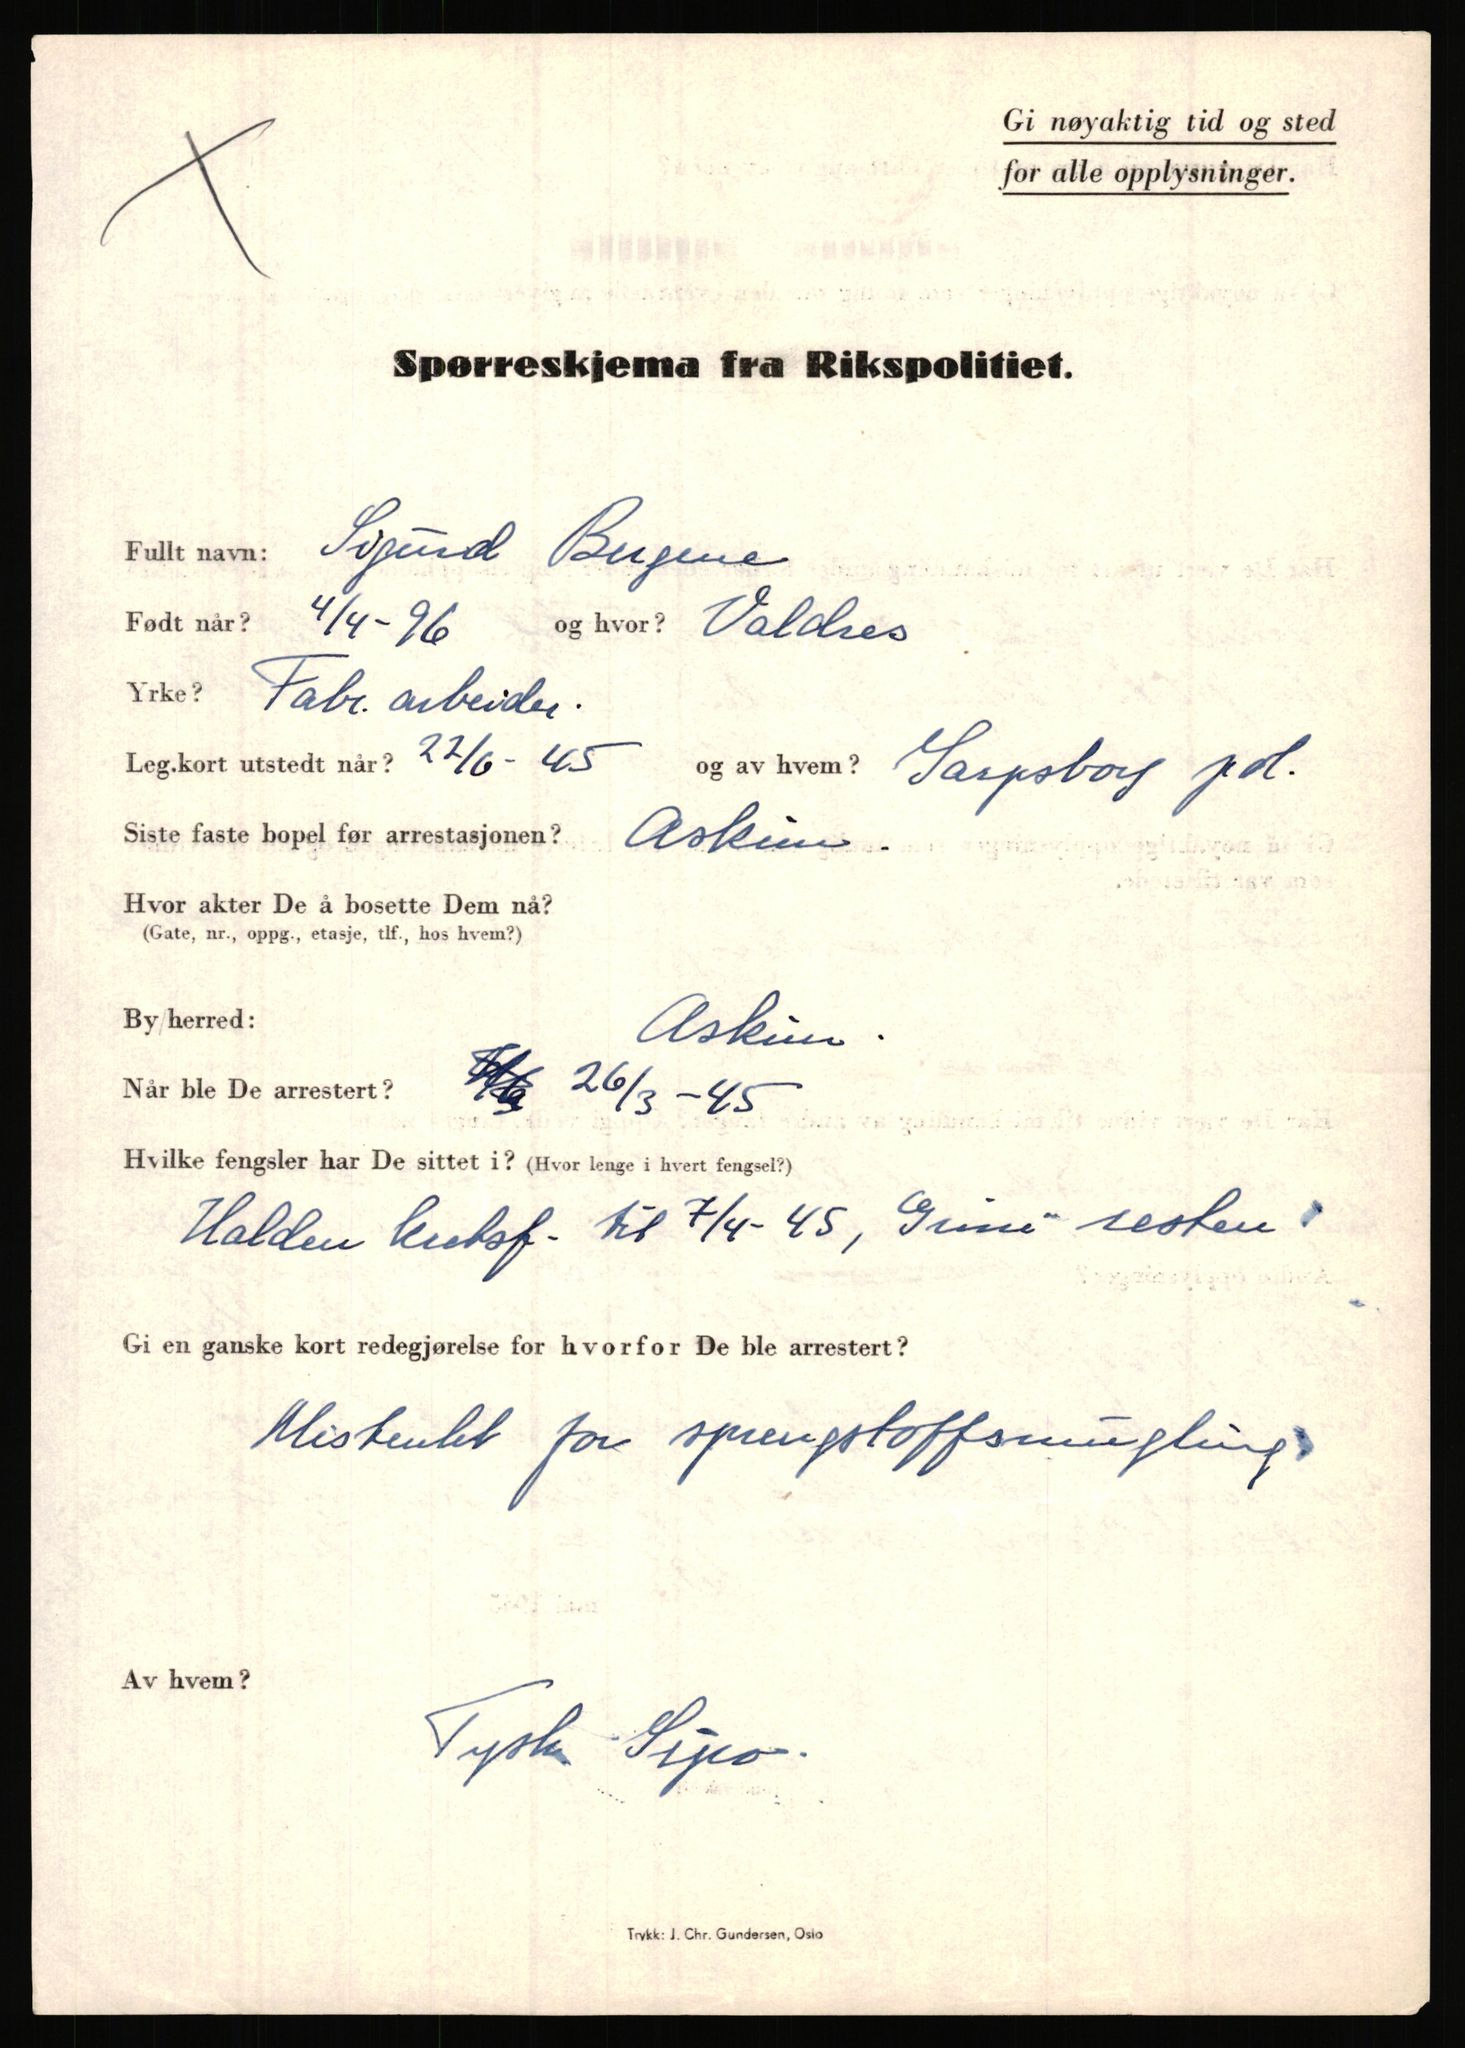 Gi nøyaktig tid og sted
for alle opplysninger.
Spørreskjema fra Rikspolitiet.
Fullt navn: Sigurd Bergene
Født når? 4/4-96 og hvor? Valdres
Yrke? Fabr. arbeider.
Leg.kort utstedt når? 22/6-45 og av hvem? Sarpsborg pol.
Siste faste bopel før arrestasjonen? Askim.
Hvor akter De å bosette Dem nå?
(Gate, nr., oppg., etasje, tlf., hos hvem?)
By/herred: Askim.
Når ble De arrestert? 26/3-45
Hvilke fengsler har De sittet i? (Hvor lenge i hvert fengsel?)
Halden kretsf. til 7/4-45, Grini resten
Gi en ganske kort redegjørelse for hvorfor De ble arrestert?
Mistenkt for sprengstoffsmugling
Av hvem?
Tysk Sipo.
Trykk: J. Chr. Gundersen, Oslo